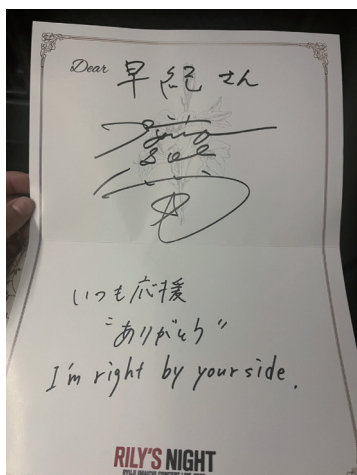 Dear 早紀さん
いつも応援
"ありがとう"
I'm right by your side.
RILY'S NIGHT